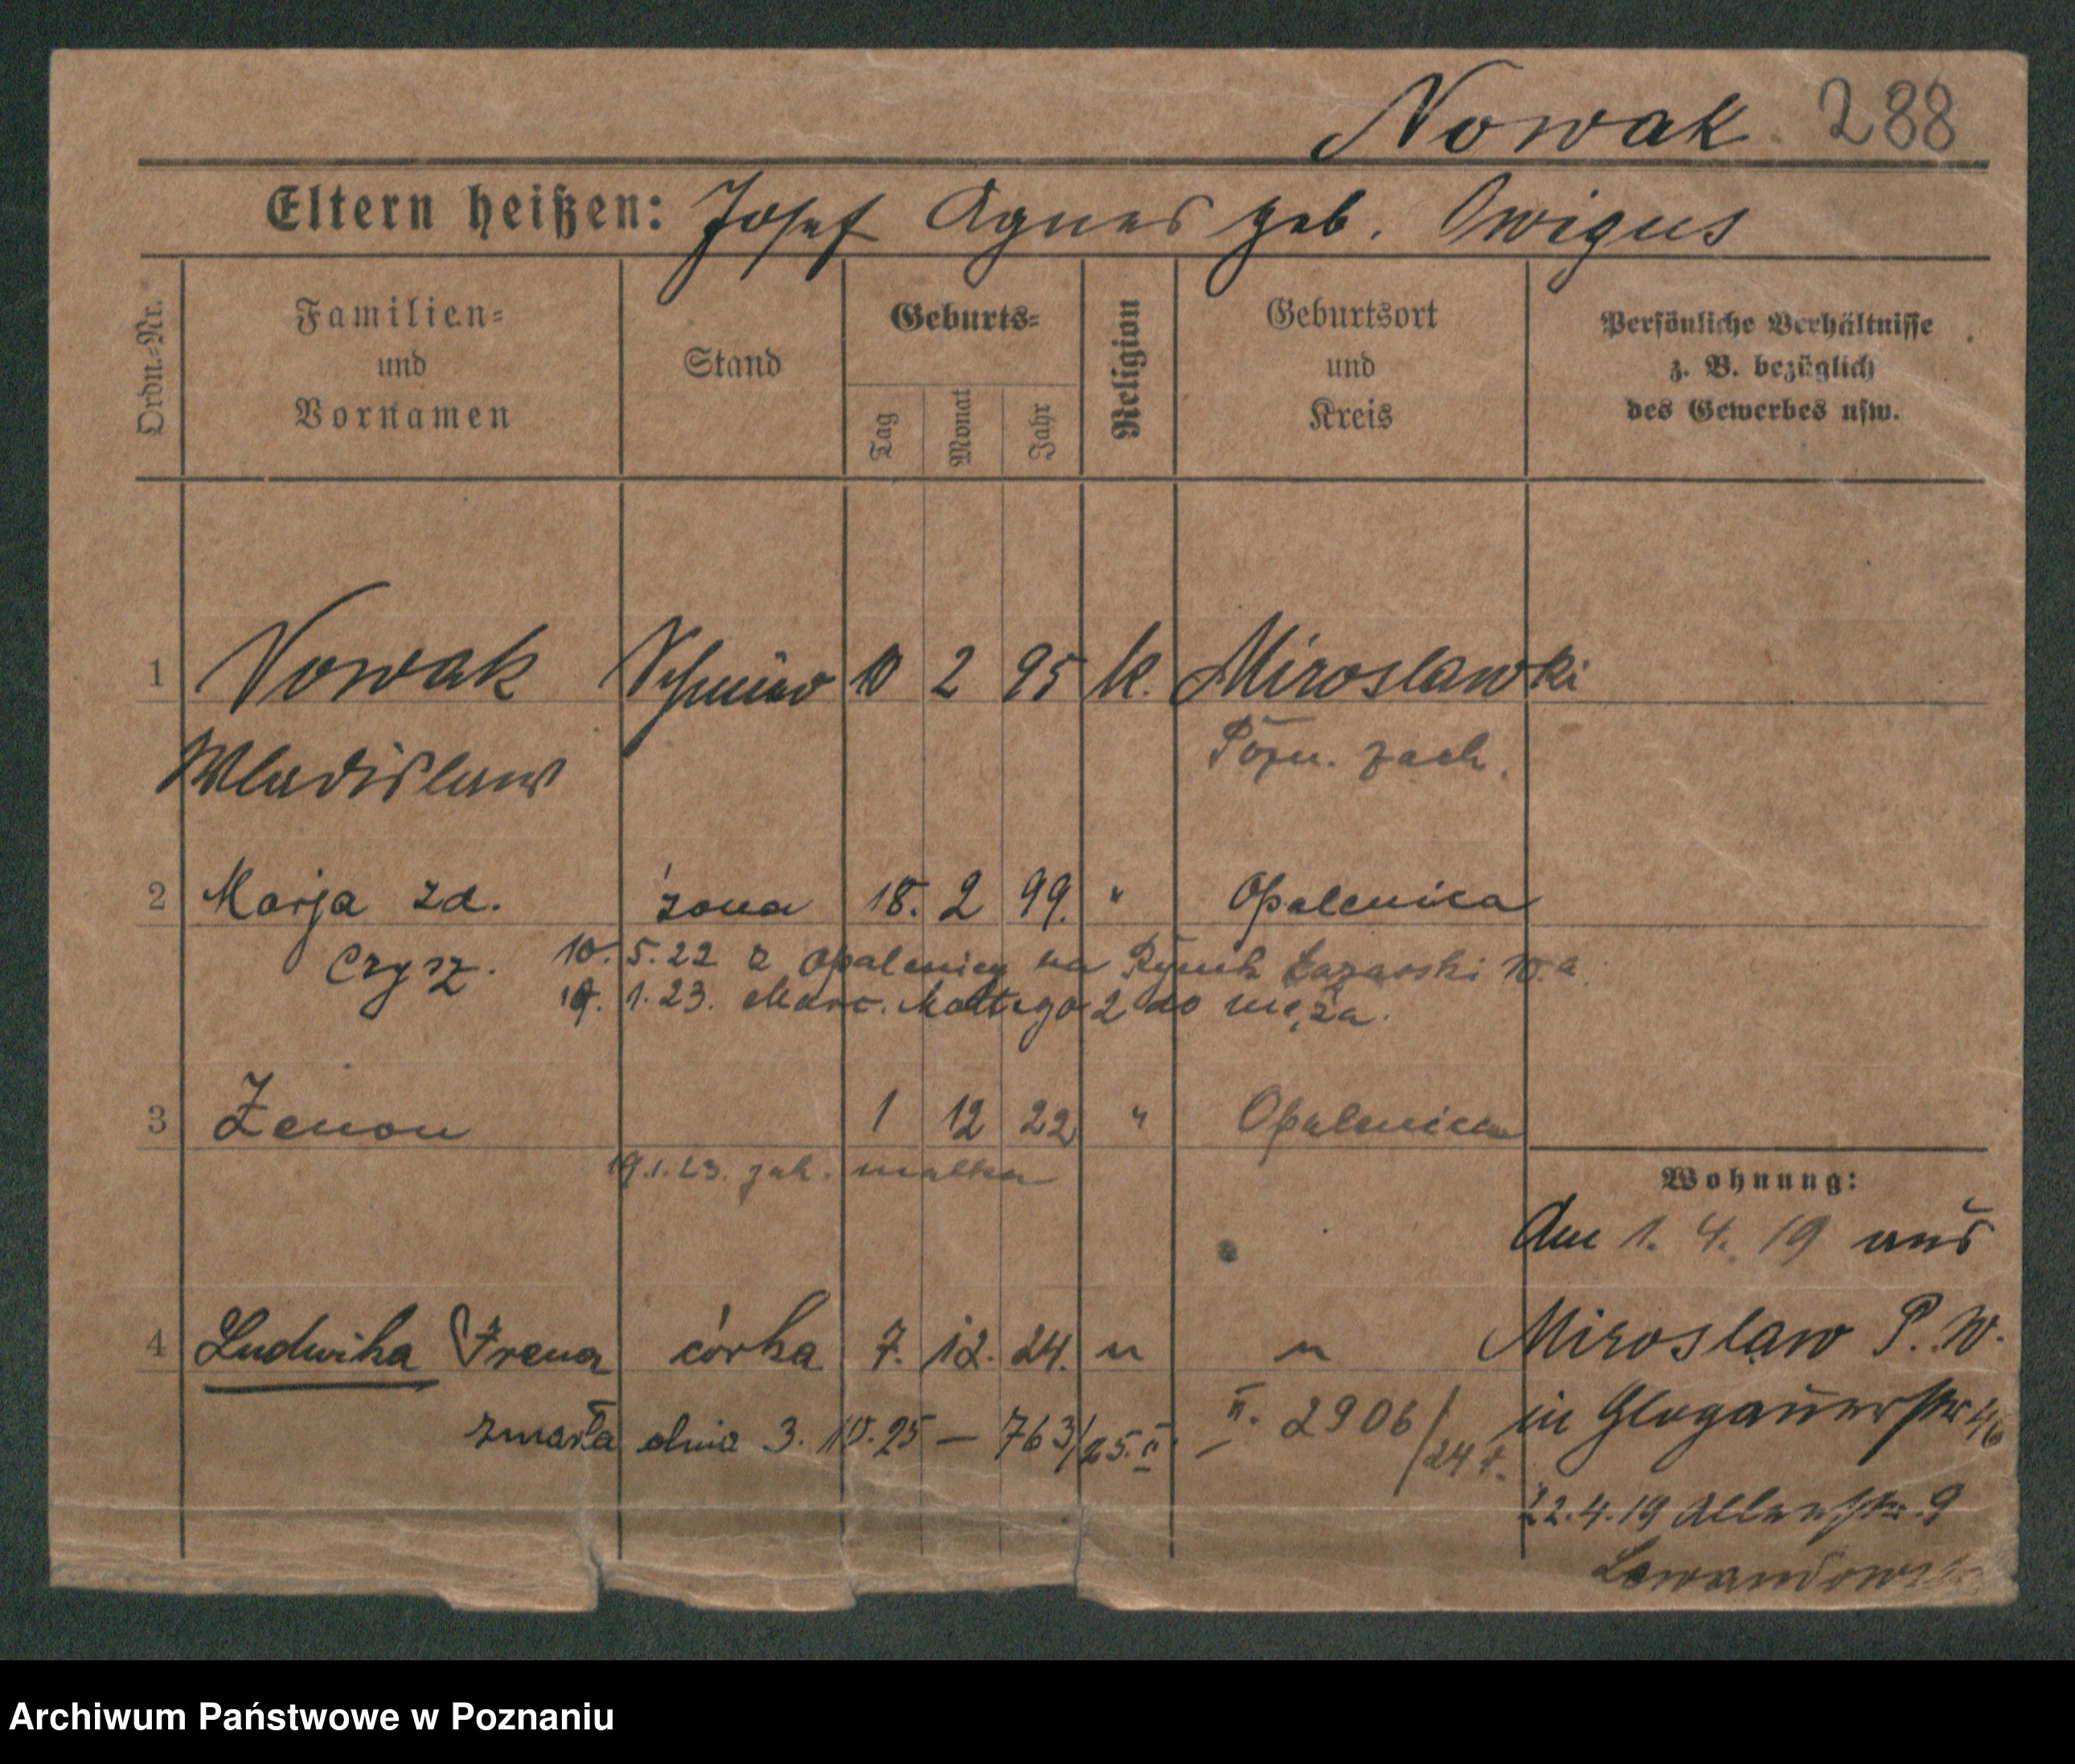 Nowak 288
Eltern heißen: Josef Agnes geb. Owigus
Ordn.-Nr.
Familien- und Vornamen
Stand
Geburts-
Tag
Monat
Jahr
Religion
Geburtsort und Kreis
Persönliche Verhältnisse
z. B. bezüglich
des Gewerbes usw.
1 Nowak 10 2 95 k. Miroslawki
Wladislaw Pozn. zach.
2 Marja zd. żona 18. 2 99. " Opalenica
10. 5.22 z Opalenicy na Rynek Łazarski 10.a
1.23. Marc. Mottego 2 do męża.
3 Zenon 1 12 22 " Opalenica
19.1.23. jak. matka
Wohnung:
Am 1. 4. 19 aus
4 Ludwika Irena córka 7. 12. 24. " " Miroslaw P. W.
zmarła dnia 3. 10.25 — 763/25. II. II. 2906/24 r. in Glogauerstr
22.4.19 9